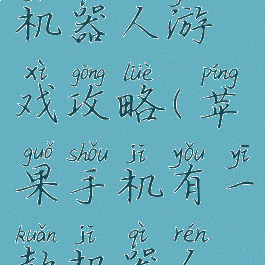 机器人游
xì gōng lüè píng
戏攻略(苹
guǒ shǒu jī yǒu yī
果手机有一
kuǎn jī qì rén
款机器人